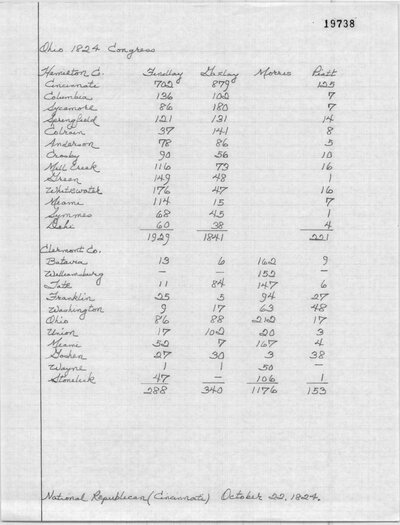 19738
Ohio 1824 Congress
Hamilton Co. Findlay Gazlay Morris Piatt
Cincinnati 702 879 125
Columbia 136 102 7
Sycamore 86 180 7
Springfield 121 131 14
Colrain 37 141 8
Anderson 78 86 5
Crosby 90 56 10
Mill Creek 116 73 16
Green 149 48 1
Whitewater 176 47 16
Miami 114 15 7
Symmes 68 45 1
Delhi 60 38 4
1929 1841 221
Clermont Co.
Batavia 13 6 162 9
Williamsburg — — 152 —
Tate 11 84 147 6
Franklin 25 5 94 27
Washington 9 17 63 48
Ohio 86 88 212 17
Union 17 102 20 3
Miami 52 7 167 4
Goshen 27 30 3 38
Wayne 1 1 50 —
Stonelick 47 — 106 1
288 340 1176 153
National Republican (Cincinnati) October 22, 1824.